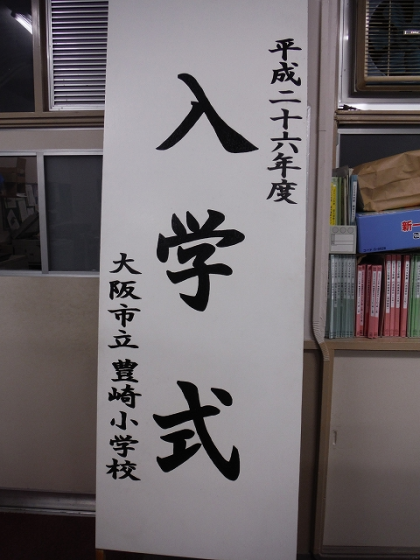 平成二十六年度
入学式
大阪市立 豊崎小学校
新一